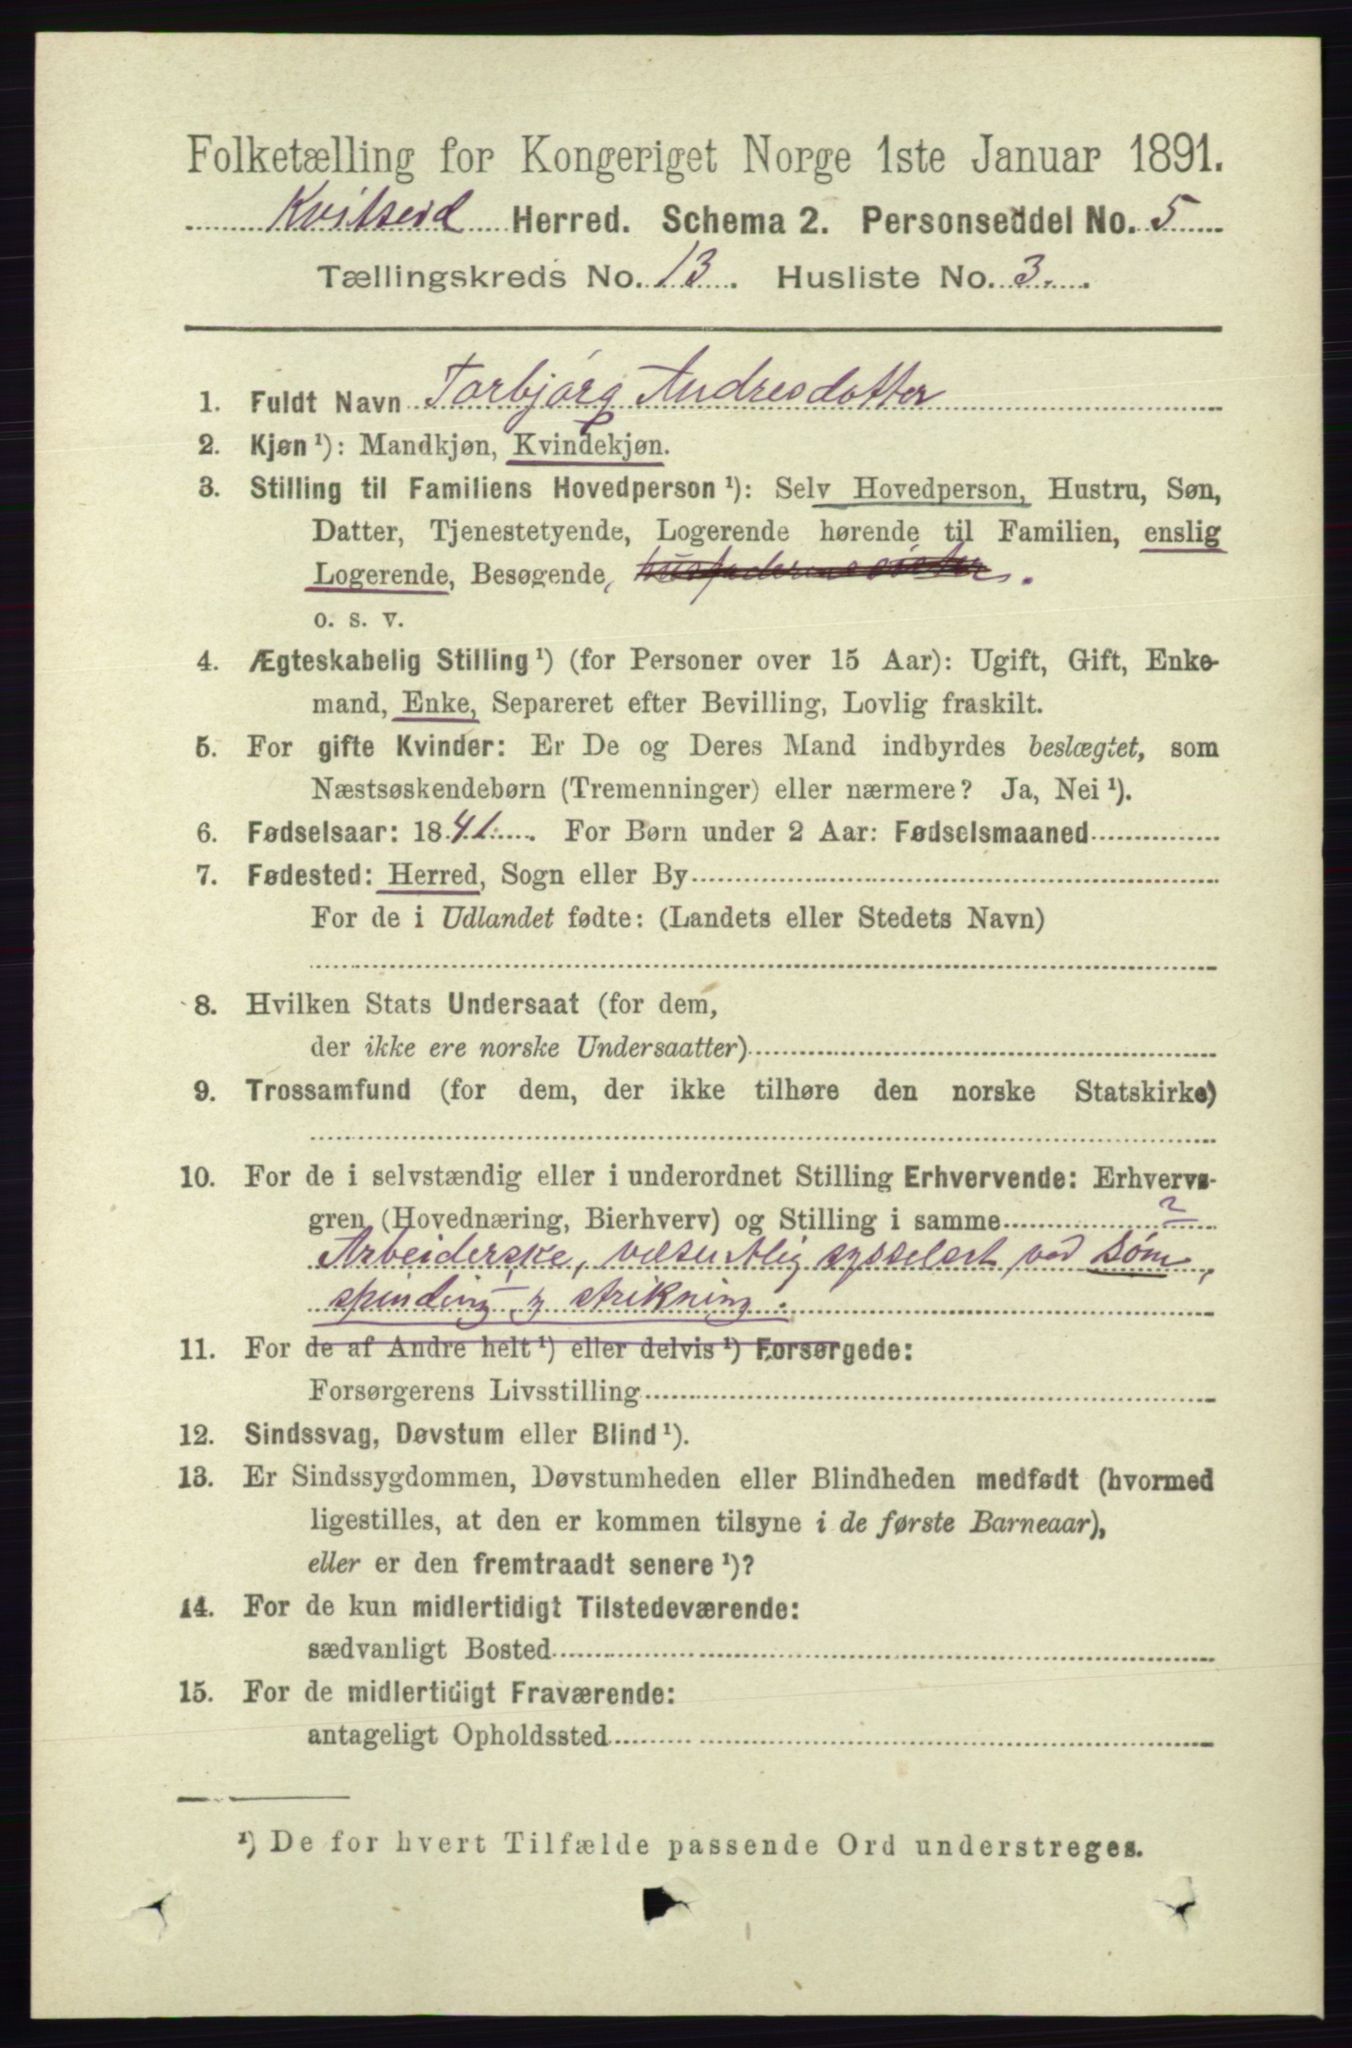 Folketælling for Kongeriget Norge 1ste Januar 1891.
Kvitseid Herred. Schema 2. Personseddel No. 5
Tællingskreds No. 13. Husliste No. 3.
1. Fuldt Navn Torbjørg Andresdotter
2. Kjøn ¹): Mandkjøn, Kvindekjøn.
3. Stilling til Familiens Hovedperson ¹): Selv Hovedperson, Hustru, Søn,
Datter, Tjenestetyende, Logerende hørende til Familien, enslig
Logerende, Besøgende, husfaderens sister.
o. s. v.
4. Ægteskabelig Stilling ¹) (for Personer over 15 Aar): Ugift, Gift, Enke-
mand, Enke, Separeret efter Bevilling, Lovlig fraskilt.
5. For gifte Kvinder: Er De og Deres Mand indbyrdes beslægtet, som
Næstsøskendebørn (Tremenninger) eller nærmere? Ja, Nei ¹).
6. Fødselsaar: 1841. For Børn under 2 Aar: Fødselsmaaned
7. Fødested: Herred, Sogn eller By
For de i Udlandet fødte: (Landets eller Stedets Navn)
8. Hvilken Stats Undersaat (for dem,
der ikke ere norske Undersaatter)
9. Trossamfund (for dem, der ikke tilhøre den norske Statskirke)
10. For de i selvstændig eller i underordnet Stilling Erhvervende: Erhvervs-
gren (Hovednæring, Bierhverv) og Stilling i samme ?
Arbeiderske, væsentlig sysselsat ved søm,
spinding og strikning.
11. For de af Andre helt ¹) eller delvis ¹) Forsørgede:
Forsørgerens Livsstilling
12. Sindssvag, Døvstum eller Blind ¹).
13. Er Sindssygdommen, Døvstumheden eller Blindheden medfødt (hvormed
ligestilles, at den er kommen tilsyne i de første Barneaar),
eller er den fremtraadt senere ¹)?
14. For de kun midlertidigt Tilstedeværende:
sædvanligt Bosted
15. For de midlertidigt Fraværende:
antageligt Opholdssted
¹) De for hvert Tilfælde passende Ord understreges.